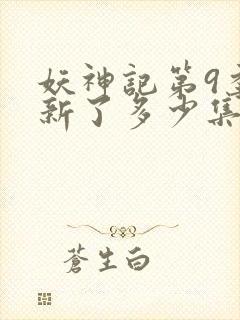 妖神記第9季
新了多少集
蒼生白